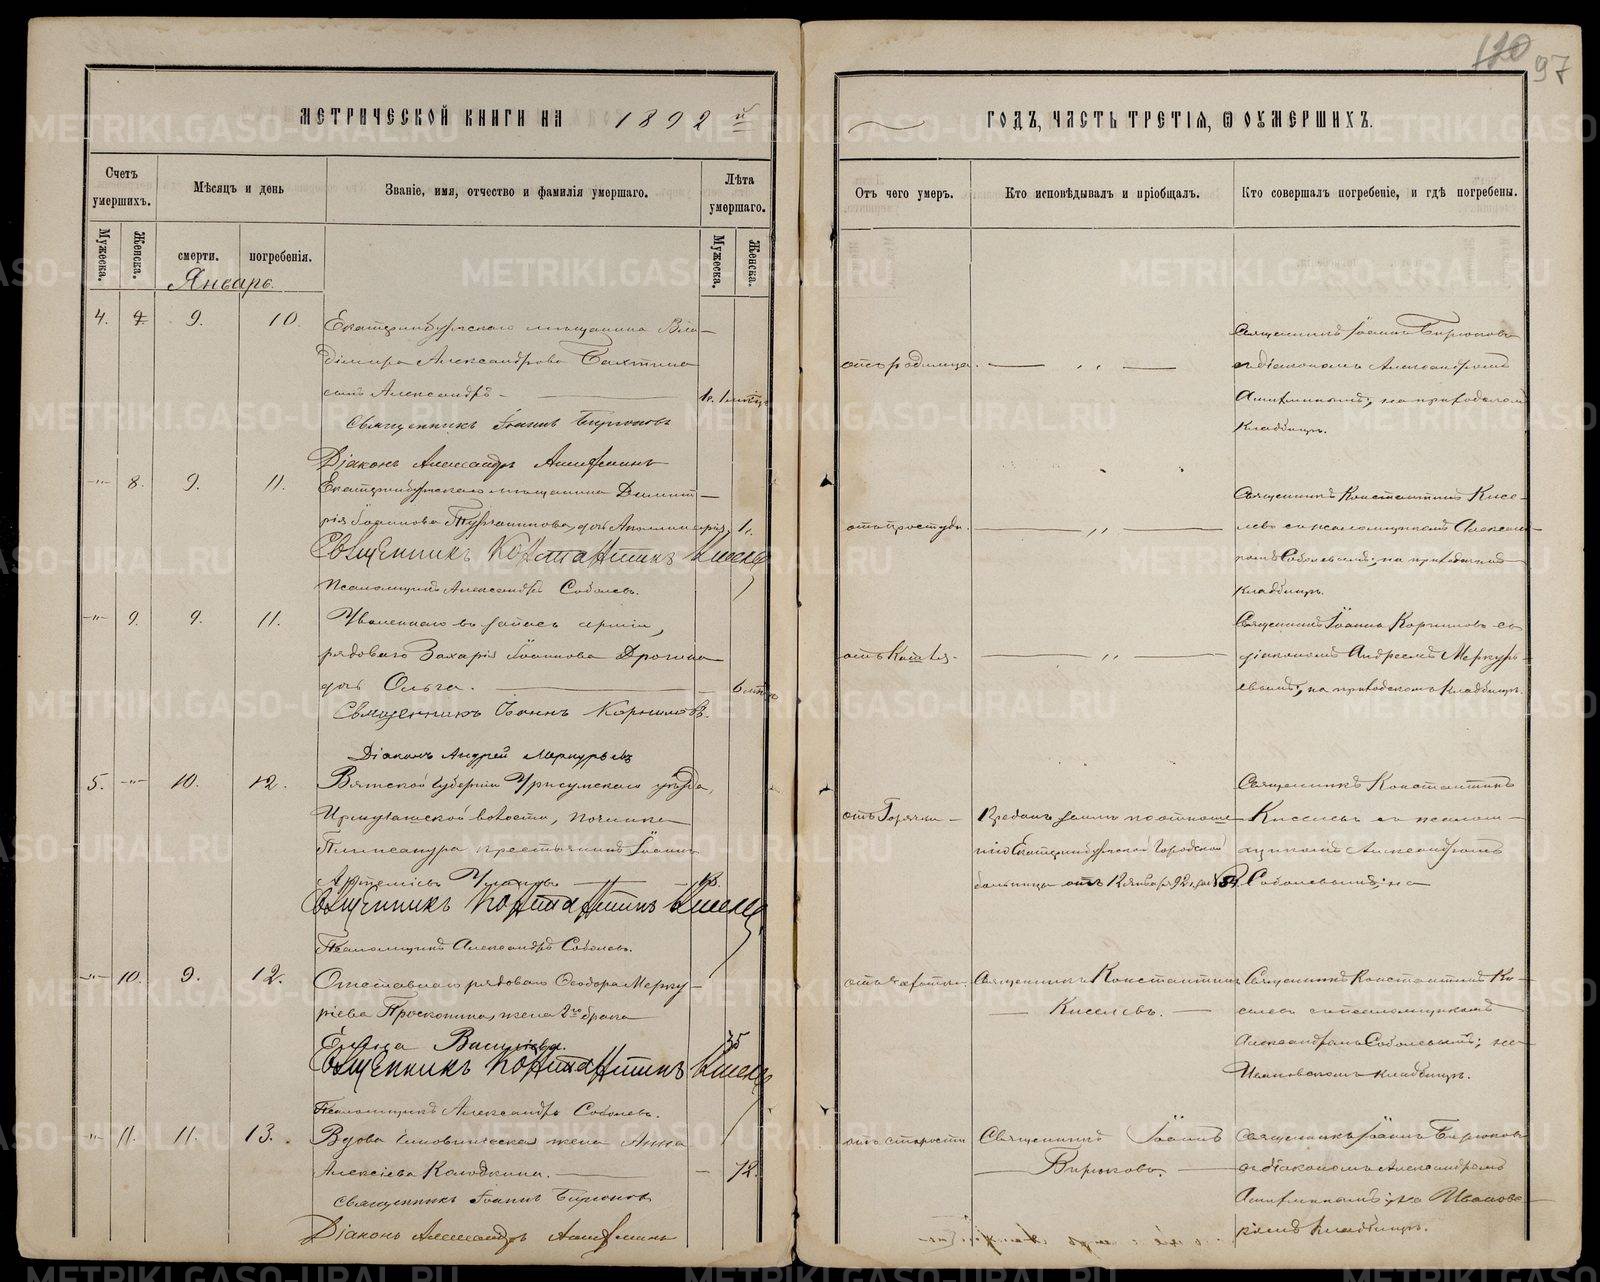 120 97
МЕТРИЧЕСКОЙ КНИГИ НА 1892 й
ГОДЪ, ЧАСТЬ ТРЕТІЯ, Ѿ ОУМЕРШИХЪ.
Счетъ умершихъ.
Мѣсяцъ и день
Званіе, имя, отчество и фамилія умершаго.
Лѣта умершаго.
Отъ чего умеръ.
Кто исповѣдывалъ и пріобщалъ.
Кто совершалъ погребеніе, и гдѣ погребены.
Мужеска.
Женска.
смерти.
погребенія.
Мужеска.
Женска.
Январь.
4. 9. 10. Екатеринбургскаго мѣщанина Вла-
диміра Александрова Бахтина
сынъ Александръ
Священникъ Іоаннъ Бирюковъ
Діаконъ Александръ
отъ родимца.
Священникъ Іоаннъ Бирюковъ
съ діакономъ Александромъ
на приходскомъ
кладбищѣ.
8. 9. 11. Екатеринбургскаго мѣщанина Димит-
рія Іоаннова дочь Аполлинарія, 1.
Священникъ Константинъ Киселевъ
Псаломщикъ Александръ Соболевъ.
отъ простуды.
Священникъ Константинъ Кисе-
левъ съ псаломщикомъ Александ-
ромъ Соболевымъ, на приходскомъ
кладбищѣ.
9. 9. 11. Уволеннаго въ запасъ арміи,
рядоваго Захарія Іоаннова
дочь Ольга.
Священникъ Іоаннъ Корниловъ.
Діаконъ Андрей Меркурьевъ
отъ кашля.
Священникъ Іоаннъ Корниловъ съ
діакономъ Андреемъ Меркурь-
евымъ, на приходскомъ кладбищѣ.
5. 10. 12. Вятской губерніи Уржумскаго уѣзда,
волости, починка
крестьянинъ Іоаннъ
Священникъ Константинъ Киселевъ
Псаломщикъ Александръ Соболевъ.
отъ Горячки
Преданъ землѣ по отноше-
нію Екатеринбургской Городской
больницы отъ 12 января 92 года
Священникъ Константинъ
Киселевъ съ псалом-
щикомъ Александромъ
Соболевымъ; на
10. 9. 12. Отставнаго рядоваго Ѳеодора Мерку-
ріева жена 2го брака
Васильева. 35
Священникъ Константинъ Киселевъ
Псаломщикъ Александръ Соболевъ.
отъ чахотки.
Священникъ Константинъ
Киселевъ.
Священникъ Константинъ Ки-
селевъ съ псаломщикомъ
Александромъ Соболевымъ; на
Ивановскомъ кладбищѣ.
11. 11. 13. Вдова чиновническая жена Анна
Алексіева Колодкина. 72.
Священникъ Іоаннъ Бирюковъ
Діаконъ Александръ
отъ старости
Священникъ Іоаннъ
Бирюковъ.
Священникъ Іоаннъ Бирюковъ
съ діакономъ Александромъ
на Иванов-
скомъ кладбищѣ.
METRIKI.GASO-URAL.RU